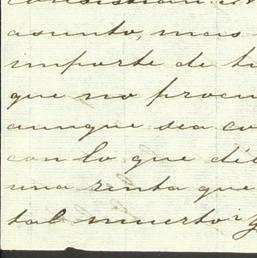 consistian
asunto, mas
importe de tu
que no procu
aunque sea co
con lo que di
una renta que
tal muerto